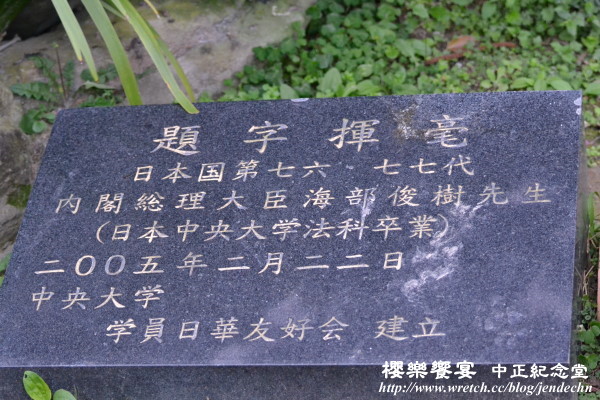 題字揮毫
日本国第七六・七七代
内閣総理大臣海部俊樹先生
(日本中央大学法科卒業)
二〇〇五年二月二二日
中央大学
学員日華友好会 建立
櫻樂饗宴 中正紀念堂
http://www.wretch.cc/blog/jendechn